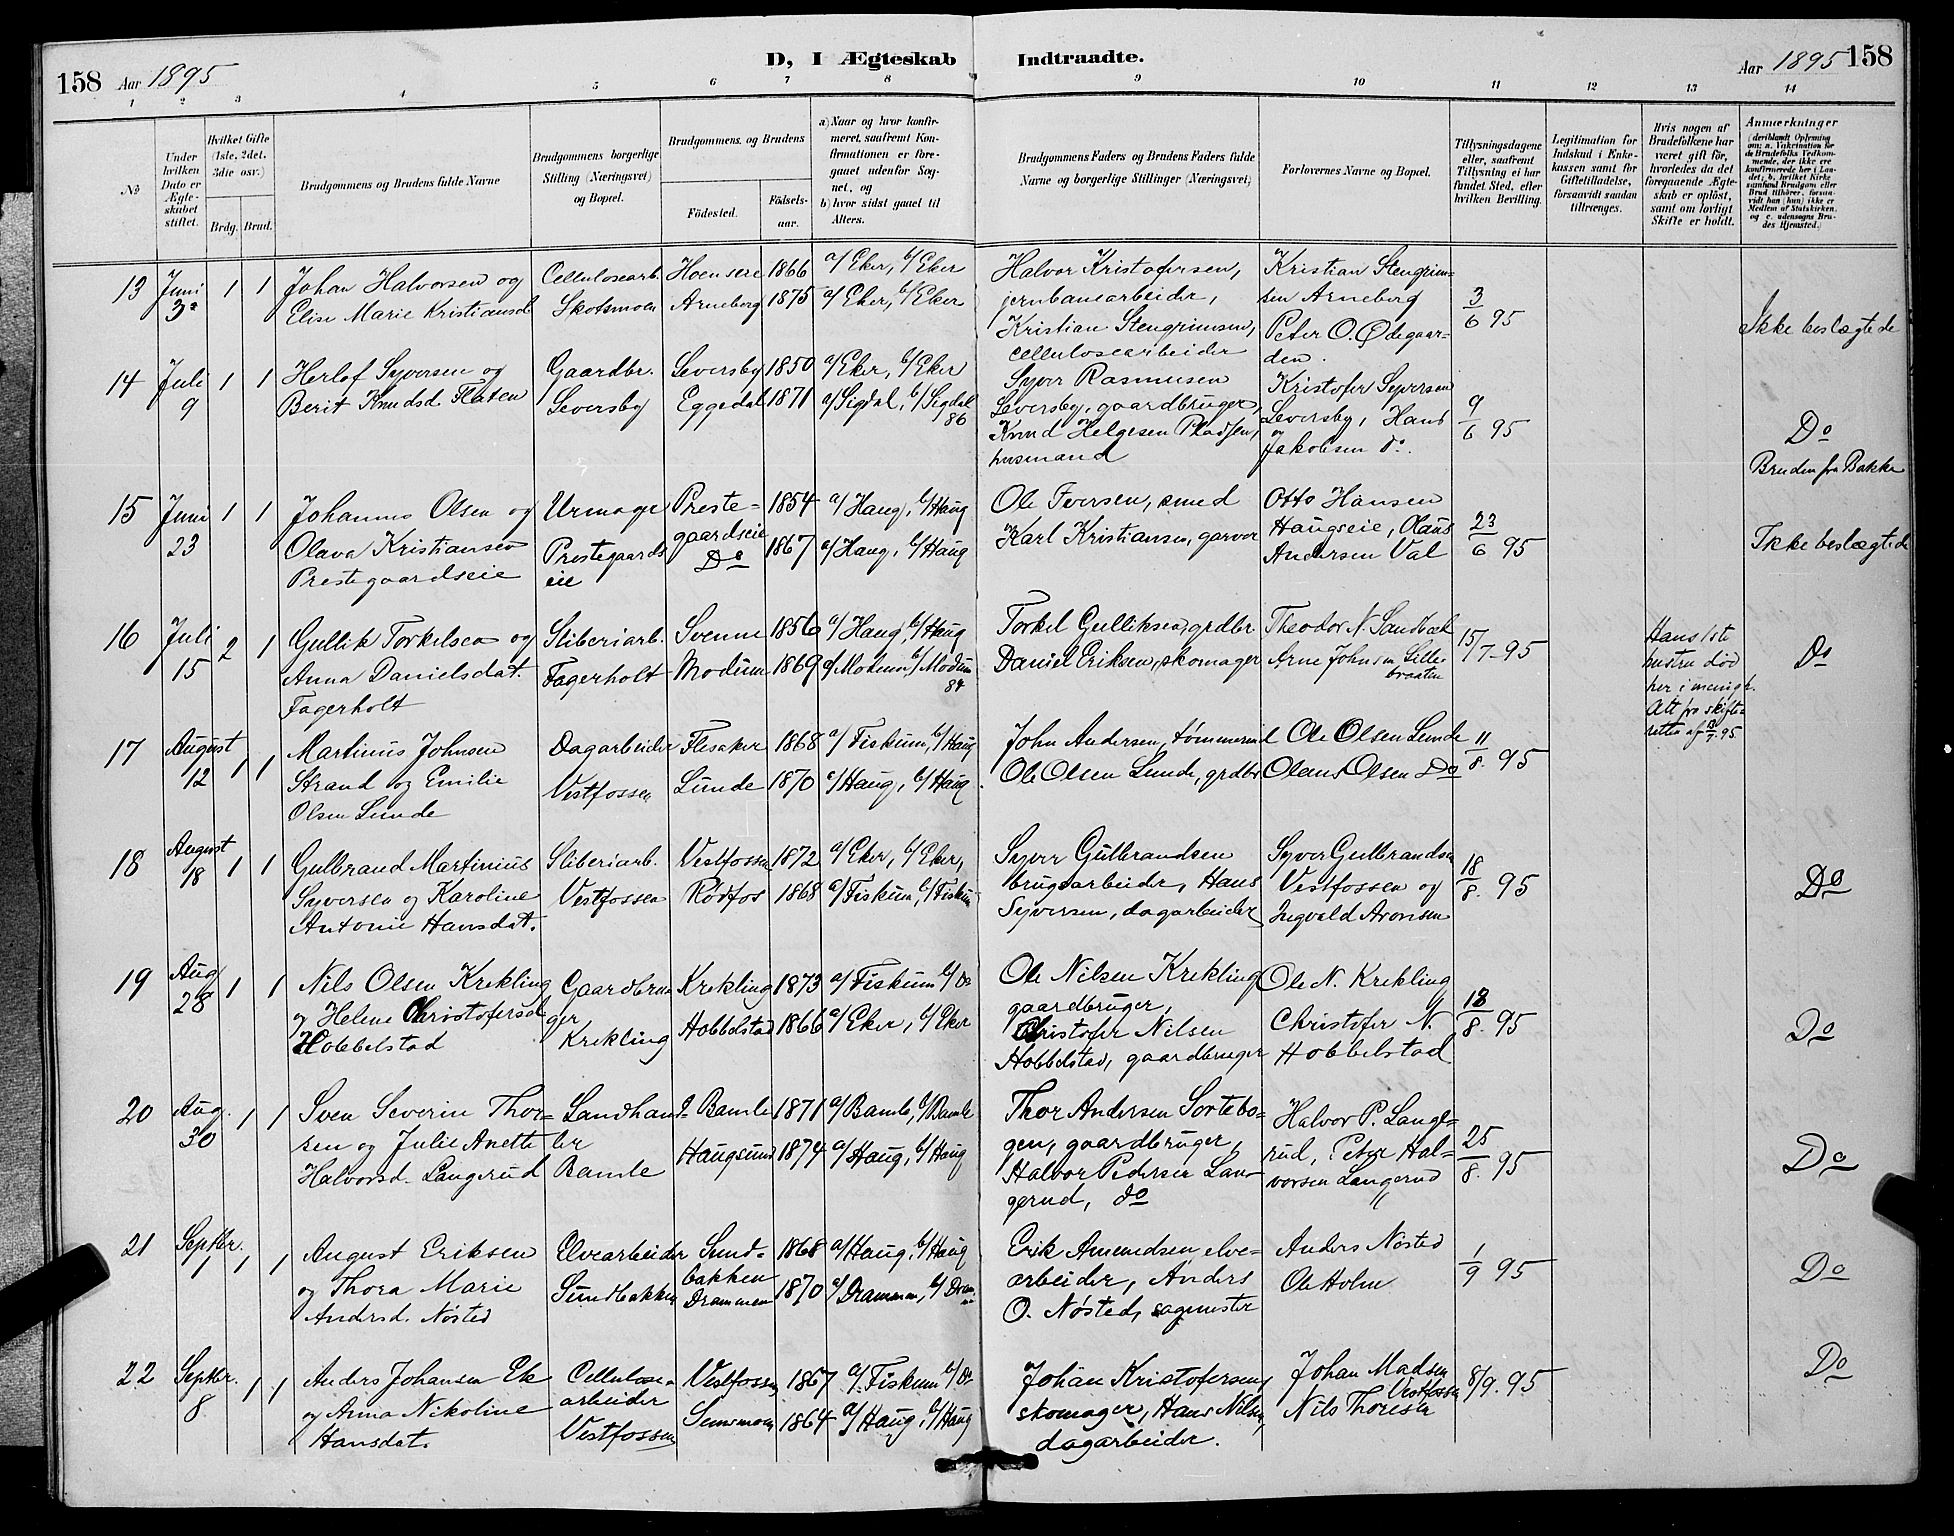 158 Aar 1895 D, I Ægteskab Indtraadte. Aar 1895 158
1 2 3 4 5 6 7 8 9 10 11 12 13 14
No
Under hvilken Dato er Ægteskabet stiftet.
Hvilket Gifte (1ste, 2det, 3die osv.)
Brdg. Brud.
Brudgommens og Brudens fulde Navne
Brudgommens borgerlige Stilling (Næringsvei) og Bopæl.
Brudgommens og Brudens
Fødested. Fødsels-aar.
a) Naar og hvor konfirmeret, saafremt Konfirmationen er foregaaet udenfor Sognet, og
b) hvor sidst gaaet til Alters.
Brudgommens Faders og Brudens Faders fulde Navne og borgerlige Stillinger (Næringsvei)
Forlovernes Navne og Bopæl.
Tillysningsdagene eller, saafremt Tillysning ei har fundet Sted, efter hvilken Bevilling.
Legitimation for Indskud i Enkekassen samt for Giftetilladelse, forsaavidt saadan tiltrænges.
Hvis nogen af Brudefolkene har været gift før, hvorledes da det foregaaende Ægteskab er opløst, samt om lovligt Skifte er holdt.
Anmærkninger
13 Juni 3. 1 1 Johan Halvorsen og Elise Marie Kristiansd. Cellulosearb. Skotsmoen Hoenseie 1866 a/ Eker, b/ Eker Arneberg 1875 a/ Eker, b/ Eker Halvor Kristofersen, jernbanearbeider, Kristian Stengrimsen, cellulosearbeider Kristian Stengrimsen Arneberg Peter O. Ødegaarden. 3/6 95 Ikke beslægtede
14 Juli 9 1 1 Herlof Syversen og Berit Knudsd. Flaten Gaardbr. Leversby Leversby 1850 a/ Eker, b/ Eker Eggedal 1871 a/ Sigdal, b/ Sigdal 86 Syver Rasmusen Leversby, gaardbruger, Knud Helgesen Pladsen, husmand Kristofer Syversen Leversby, Hans og Jakobsen do. 9/6 95 Do Bruden fra Bakke
15 Juni 23 1 1 Johannes Olsen og Olava Kristiansen Prestegaardseie Urmager Prestegaardseie Prestegaardseie 1854 a/ Haug, b/ Haug Do 1867 a/ Haug, b/ Haug Ole Iversen, smed Karl Kristiansen, garver Otto Hansen Haugseie, Olaus Andersen Val 23/6 95 Ikke beslægtede
16 Juli 15 2 1 Gullik Torkelsen og Anna Danielsdat. Fagerholt Sliberiarb. Fagerholt Svenne 1856 a/ Haug, b/ Haug Modum 1869 a/ Modum, b/ Modum 84 Torkel Gulliksen, grdbr. Daniel Eriksen, skomager Theodor N. Sandbæk Arne Johnsen Lillebraaten 15/7-95 Hans 1ste hustru død her i menigh. Att. fra skifteretten af 12/7-95 Do
17 August 12 1 1 Martinius Johnsen Strand og Emilie Olsen Lunde Dagarbeider Vestfossen Flesaker 1868 a/ Fiskum, b/ Haug Lunde 1870 a/ Haug, b/ Haug. John Andersen, tømmermd Ole Olsen Lunde, grdbr. Ole Olsen Lunde Olaus Olsen Do 11/8. 95
18 August 18 1 1 Gulbrand Martinius Syversen og Karoline Antonie Hansdat. Sliberiarb. Vestfossen Vestfossen 1872 a/ Eker, b/ Eker, Rødfos 1868 a/ Fiskum, b/ Fiskum Syver Gulbrandsen brugsarbeider, Hans Syversen, dagarbeider Syver Gulbrandsen Vestfossen og Ingvald Aronsen 18/8. 95 Do
19 Aug 28 1 1 Nils Olsen Krekling og Helene Christofersd. Hobbelstad Gaardbruger Krekling Krekling 1873 a/ Fiskum b/ do Hobbelstad 1866 a/ Eker, b/ Eker Ole Nilsen Krekling gaardbruger, Christofer Nilsen Hobbelstad, gaardbruger Ole N. Krekling Christofer N. Hobbelstad 18/8. 95 Do
20 Aug. 30 1 1 Sven Severin Thorsen og Julie Anette Halvorsd. Langerud Landhandler Bamle Bamle 1871 a/ Bamle, b/ Bamle Haugsund 1874 a/ Haug, b/ Haug Thor Andersen Sortebogen, gaardbruger, Halvor Pedersen Langerud, do Halvor P. Langerud, Peter Halvorsen Langerud 25/8. 95 Do
21 Septbr. 1 1 1 August Eriksen og Thora Marie Andersd. Nøsted Elvearbeider Sundbakken Sundbakken 1868 a/ Haug, b/ Haug Drammen 1870 a/ Drammen, b/ Dram. Erik Amundsen, elvearbeider, Anders O. Nøsted, sagmester Anders Nøsted Ole Holm 1/9 95 Do
22 Septbr. 8. 1 1 Anders Johansen Ek og Anna Nikoline Hansdat. Cellulosearbeider Vestfossen Vestfossen 1867 a/ Fiskum b/ do 1864 a/ Haug, b/ Haug Johan Kristofersen, skomager, Hans Nilsen, dagarbeider. Johan Madsen Vestfossen Nils Thoresen 8/9. 95 Do